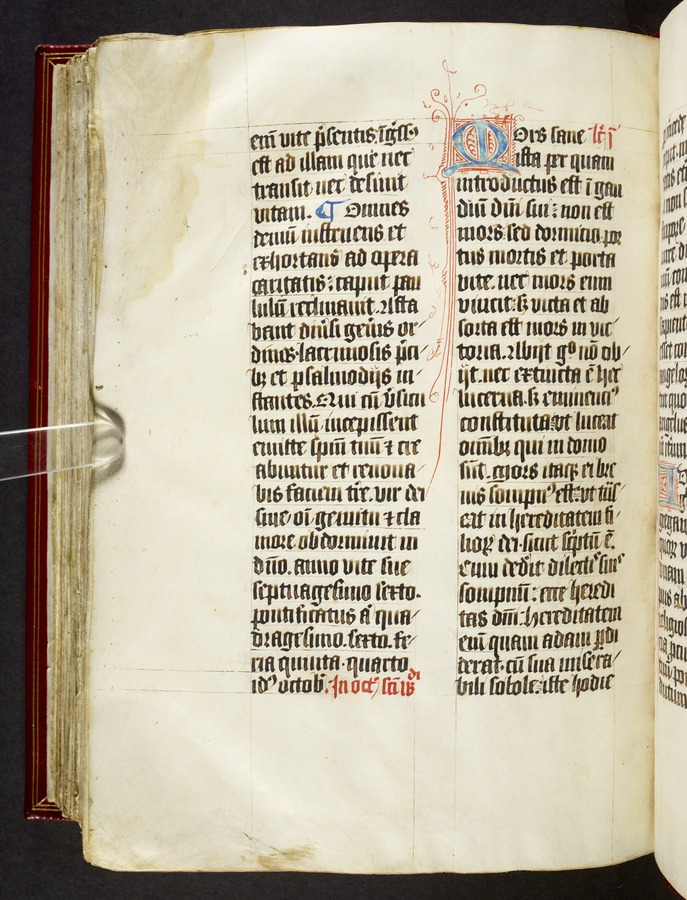 em̄ vite p̄sentis īg̅ss⁹
est ad illam que nec
transit nec desinit
vitam. ¶ Omnes
demū instruens et
exhortans ad opera
caritatis: caput pau
lulū reclinauit. Asta
bant diu̾si gen̄is or
dines lacrimosis p̄ci
bꝫ et psalmodijs in
stantes. Qui cū v̾sicu
lum illū incepissent
emitte spm̄ tuū ⁊ cre
abuntur et renoua
bis faciem tr̄e. vir dei
sine oī gemitu ⁊ cla
more obdormiuit in
dn̄o. anno vite sue
septuagesimo sexto.
pontificatus ā qua
dragesimo. sexto. Fe
ria quinta. quarto
id⁹ octob̾. In oct̾ sc̄i
Mors sane lc̄i
ista per quam
introductus est ī gau
diū dn̄i sui: non est
mors sed dormitio. por
tus mortis et porta
vite. nec mors enim
viuit. sꝫ victa et ab
sorta est mors in vic
toria. Abijt gº nō ob
ijt. nec extincta ē hec
lucerna. sꝫ eminenci⁹
constituta. vt luceat
omībꝫ qui in domo
sūt. Mors itaqꝫ ei bre
uis sompn⁹ est. vt
eat in hereditatem fi
lioꝝ dei. sicut sc̄ptū ē.
Cum dedit dilectis suis
sompnū: ecce heredi
tas dm̄. hereditatem
em̄ quam adam ꝑdi
derat. cū sua misera
bili sobole. iste hodie